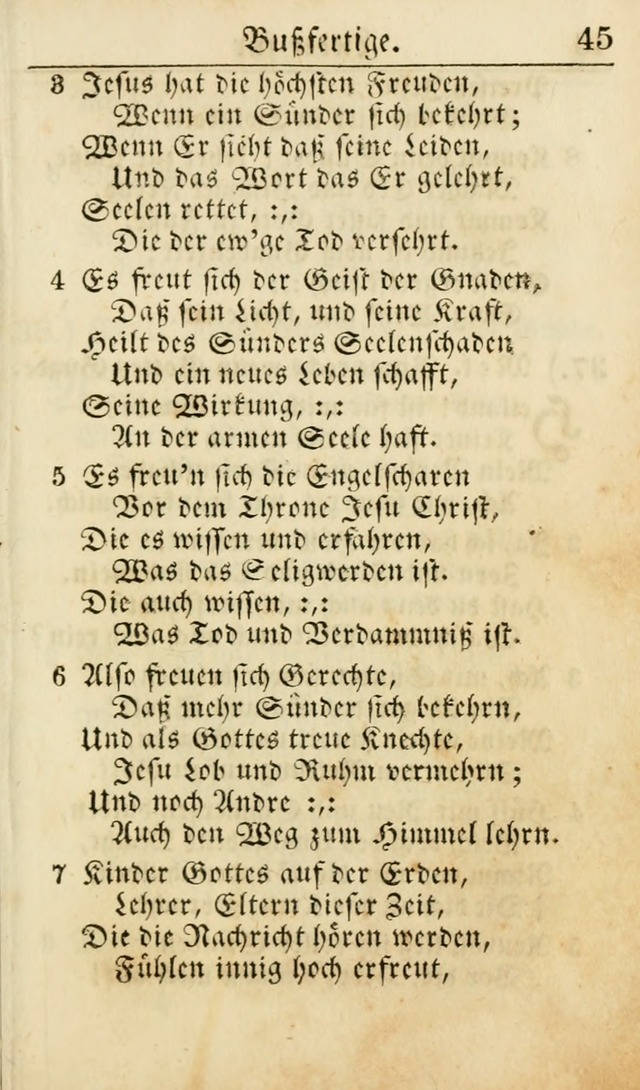 Bußfertige. 45
3 Jesus hat die höchsten Freuden,
Wenn ein Sünder sich bekehrt;
Wenn Er sieht daß seine Leiden,
Und das Wort das Er gelehrt,
Seelen rettet, :,:
Die der ew'ge Tod versehrt.
4 Es freut sich der Geist der Gnaden,
Daß sein Licht, und seine Kraft,
Heilt des Sünders Seelenschaden
Und ein neues Leben schafft,
Seine Wirkung, :,:
An der armen Seele haft.
5 Es freu'n sich die Engelscharen
Vor dem Throne Jesu Christ,
Die es wissen und erfahren,
Was das Seligwerden ist.
Die auch wissen, :,:
Was Tod und Verdammniß ist.
6 Also freuen sich Gerechte,
Daß mehr Sünder sich bekehrn,
Und als Gottes treue Knechte,
Jesu Lob und Ruhm vermehrn;
Und noch Andre :,:
Auch den Weg zum Himmel lehrn.
7 Kinder Gottes auf der Erden,
Lehrer, Eltern dieser Zeit,
Die die Nachricht hören werden,
Fühlen innig hoch erfreut,